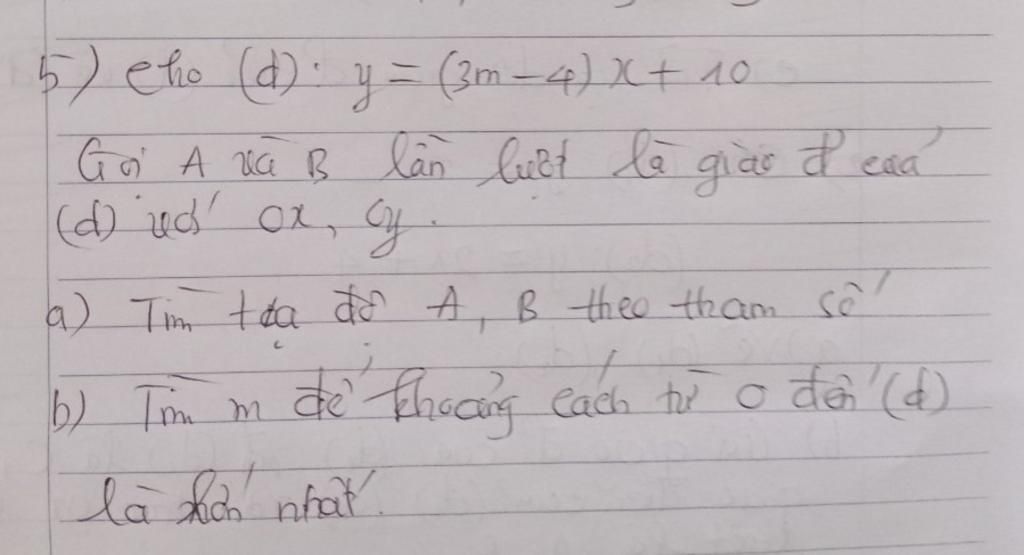 5) cho (d): y = (3m - 4) x + 10
Gọi A và B lần lượt là giao đ của
(d) với Ox, Oy.
a) Tìm tọa độ A, B theo tham số
b) Tìm m để khoảng cách từ O đến (d)
là lớn nhất.